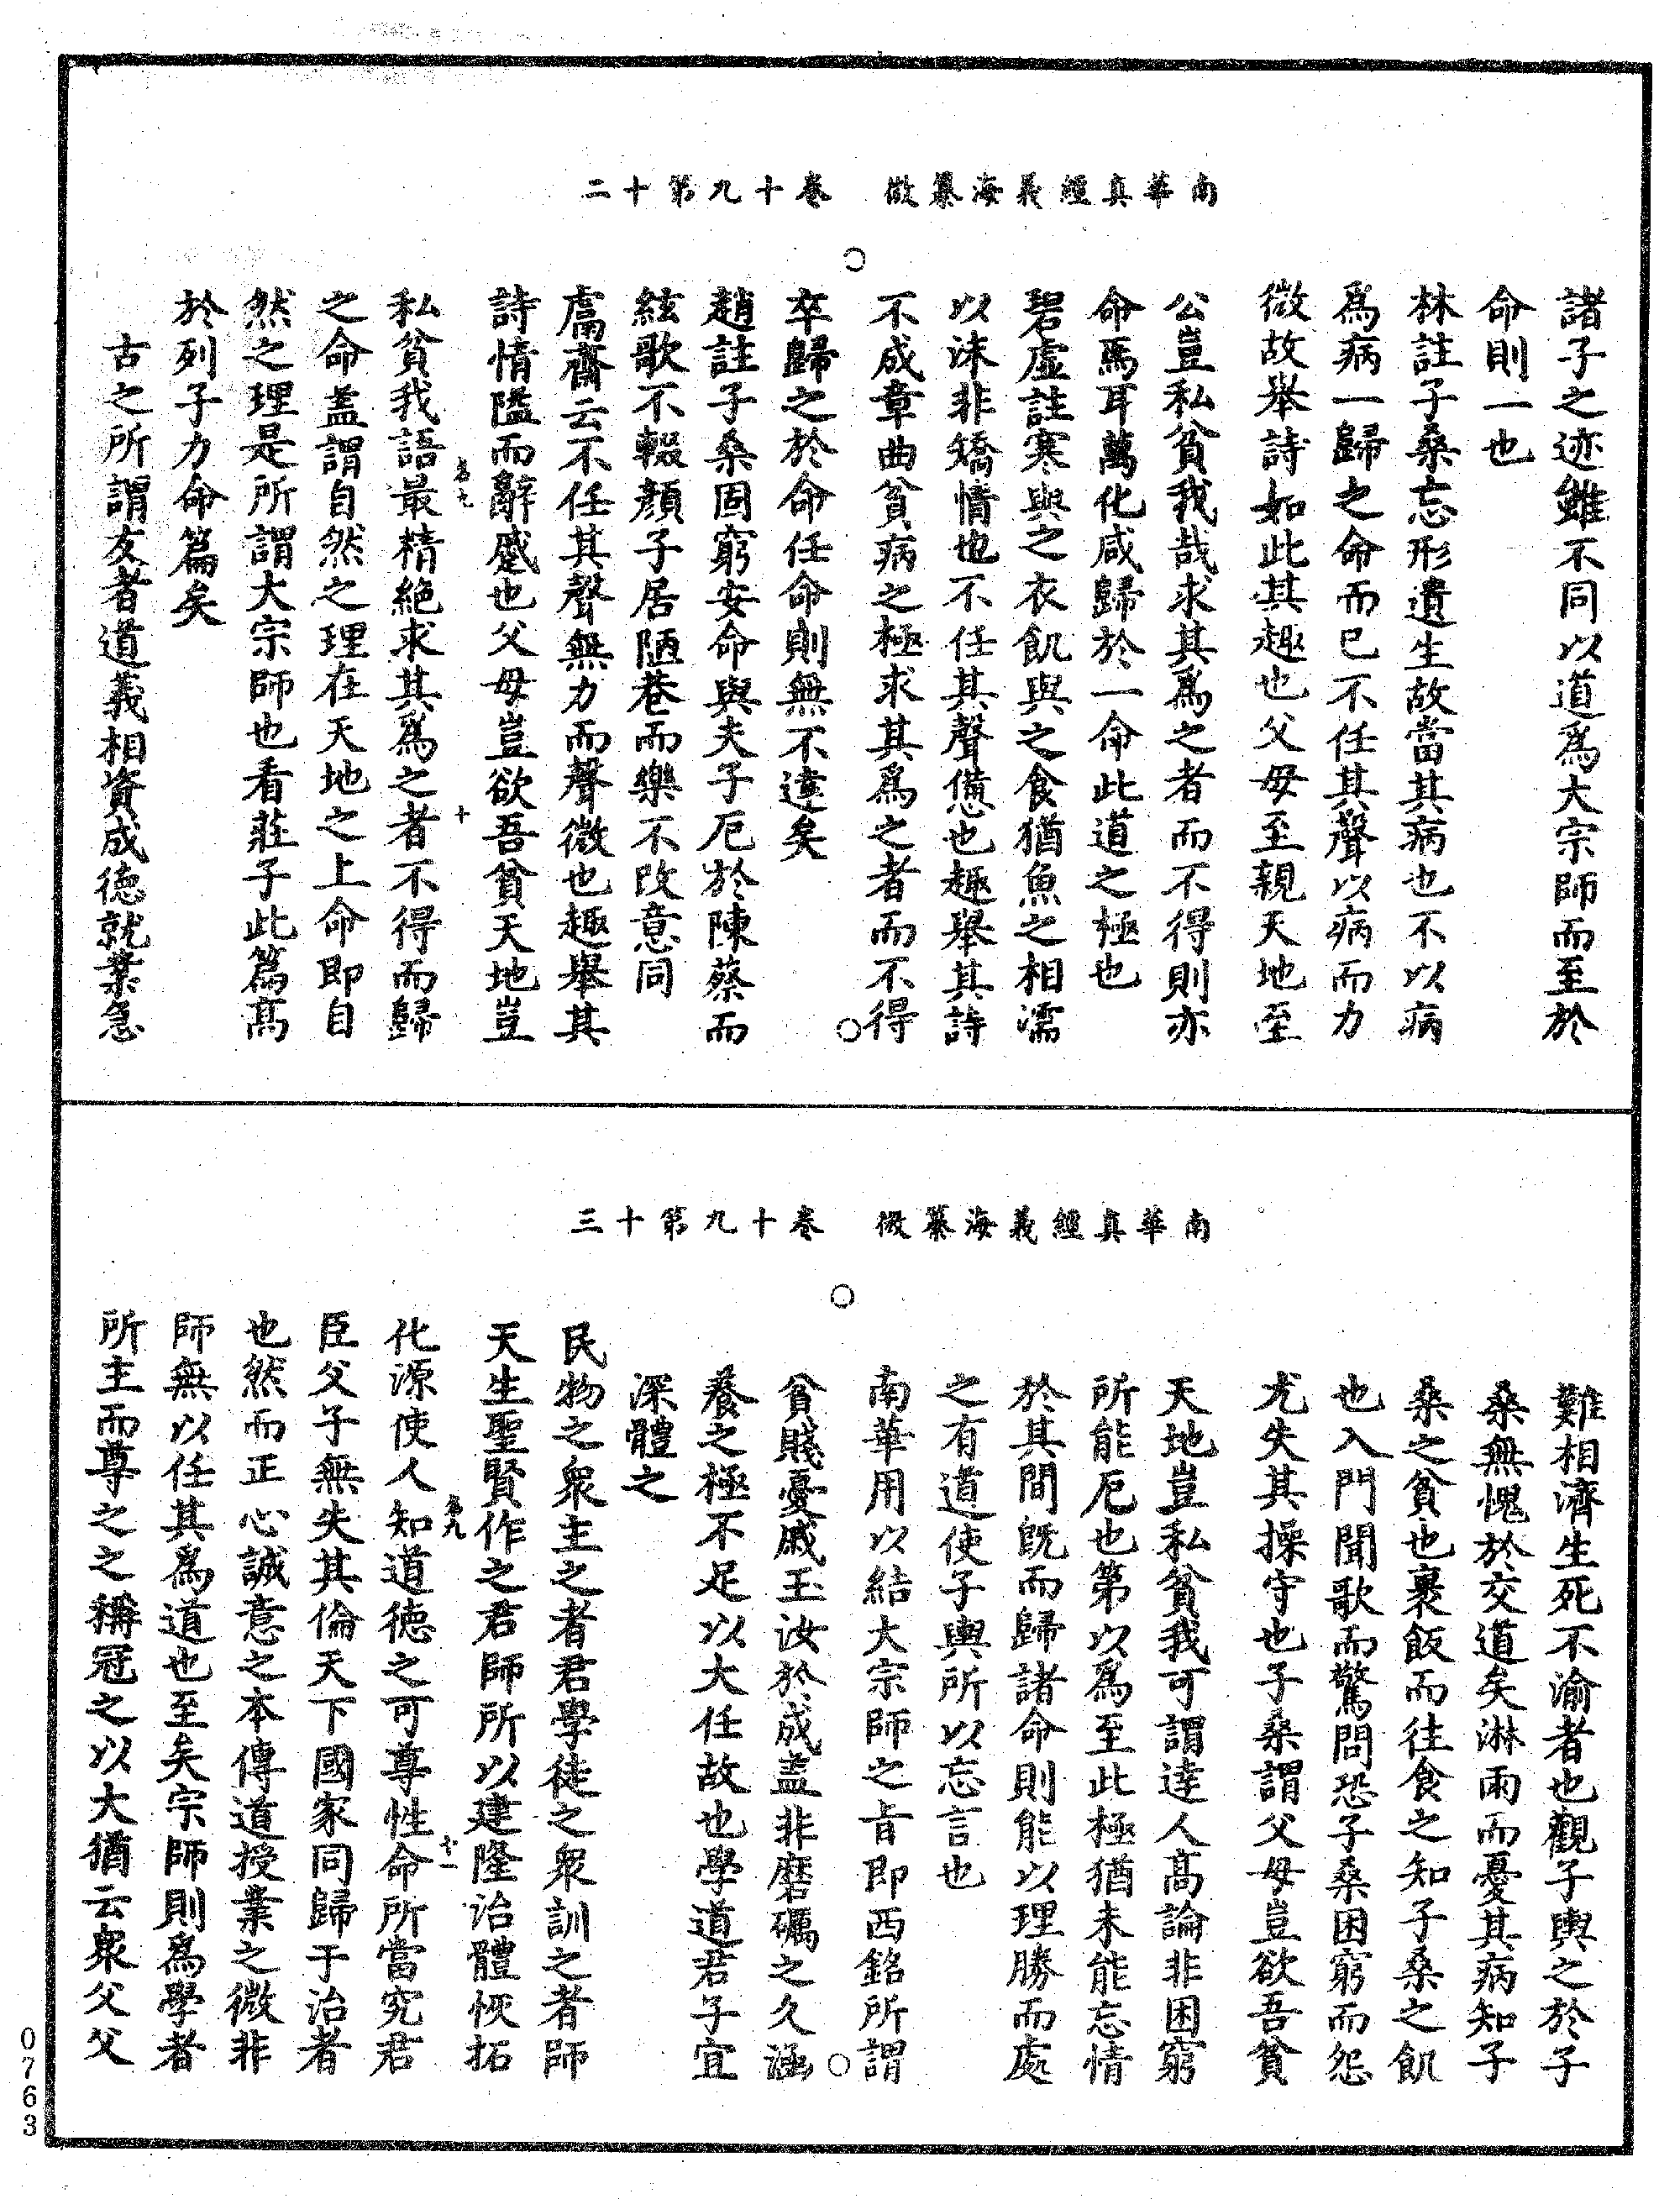 南華真經義海纂微　卷十九第十二
諸子之迹雖不同以道爲大宗師而至於
命則一也
林註子桑忘形遺生故當其病也不以病
爲病一歸之命而已不任其聲以病而力
微故舉詩如此其趣也父母至親天地至
公豈私貧我哉求其爲之者而不得則亦
命焉耳萬化咸歸於一命此道之極也
碧虛註寒與之衣飢與之食猶魚之相濡
以沫非矯情也不任其聲憊也趣舉其詩
不成章曲貧病之極求其爲之者而不得
卒歸之於命任命則無不達矣
趙註子桑固窮安命與夫子厄於陳蔡而
絃歌不輟顏子居陋巷而樂不改意同
鬳齋云不任其聲無力而聲微也趣舉其
詩情隘而辭蹙也父母豈欲吾貧天地豈
私貧我語最精絕求其爲之者不得而歸
之命盖謂自然之理在天地之上命即自
然之理是所謂大宗師也看莊子此篇髙
於列子力命篇矣
古之所謂友者道義相資成德就業急
南華真經義海纂微　卷十九第十三
難相濟生死不渝者也觀子輿之於子
桑無愧於交道矣淋雨而憂其病知子
桑之貧也裹飯而往食之知子桑之飢
也入門聞歌而驚問恐子桑困窮而怨
尤失其操守也子桑謂父母豈欲吾貧
天地豈私貧我可謂達人髙論非困窮
所能厄也第以爲至此極猶未能忘情
於其間旣而歸諸命則能以理勝而處
之有道使子輿所以忘言也
南華用以結大宗師之旨即西銘所謂
貧賤憂戚玉汝於成盖非磨礪之久涵
養之極不足以大任故也學道君子宜
深體之
民物之衆主之者君學徒之衆訓之者師
天生聖賢作之君師所以建隆治體恢拓
化源使人知道德之可尊性命所當究君
臣父子無失其倫天下國家同歸于治者
也然而正心誠意之本傳道授業之微非
師無以任其爲道也至矣宗師則爲學者
所主而尊之之稱冠之以大猶云衆父父
0763